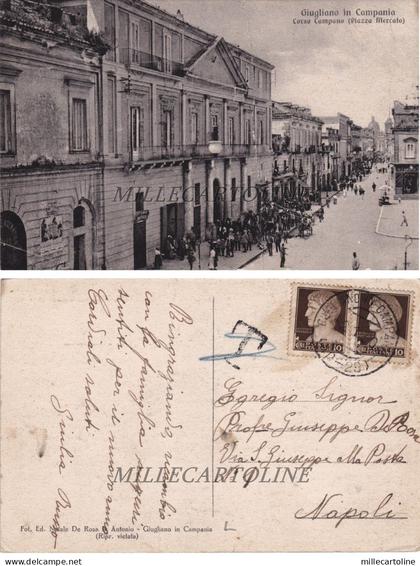 Giugliano in Campania
Corso Campano (Piazza Mercato)
MILLECARTOLINE
Ringraziando, ricambio
con la famiglia auguri
sentiti per il nuovo anno
Cordiali saluti
Giulia
T
10 10
Egregio Signor
Prof. Giuseppe De
Via S. Giuseppe
Napoli
MILLECARTOLINE
Fot. Ed. De Rosa Antonio - Giugliano in Campania
(Ripr. vietata)
www.delcampe.net
millecartoline